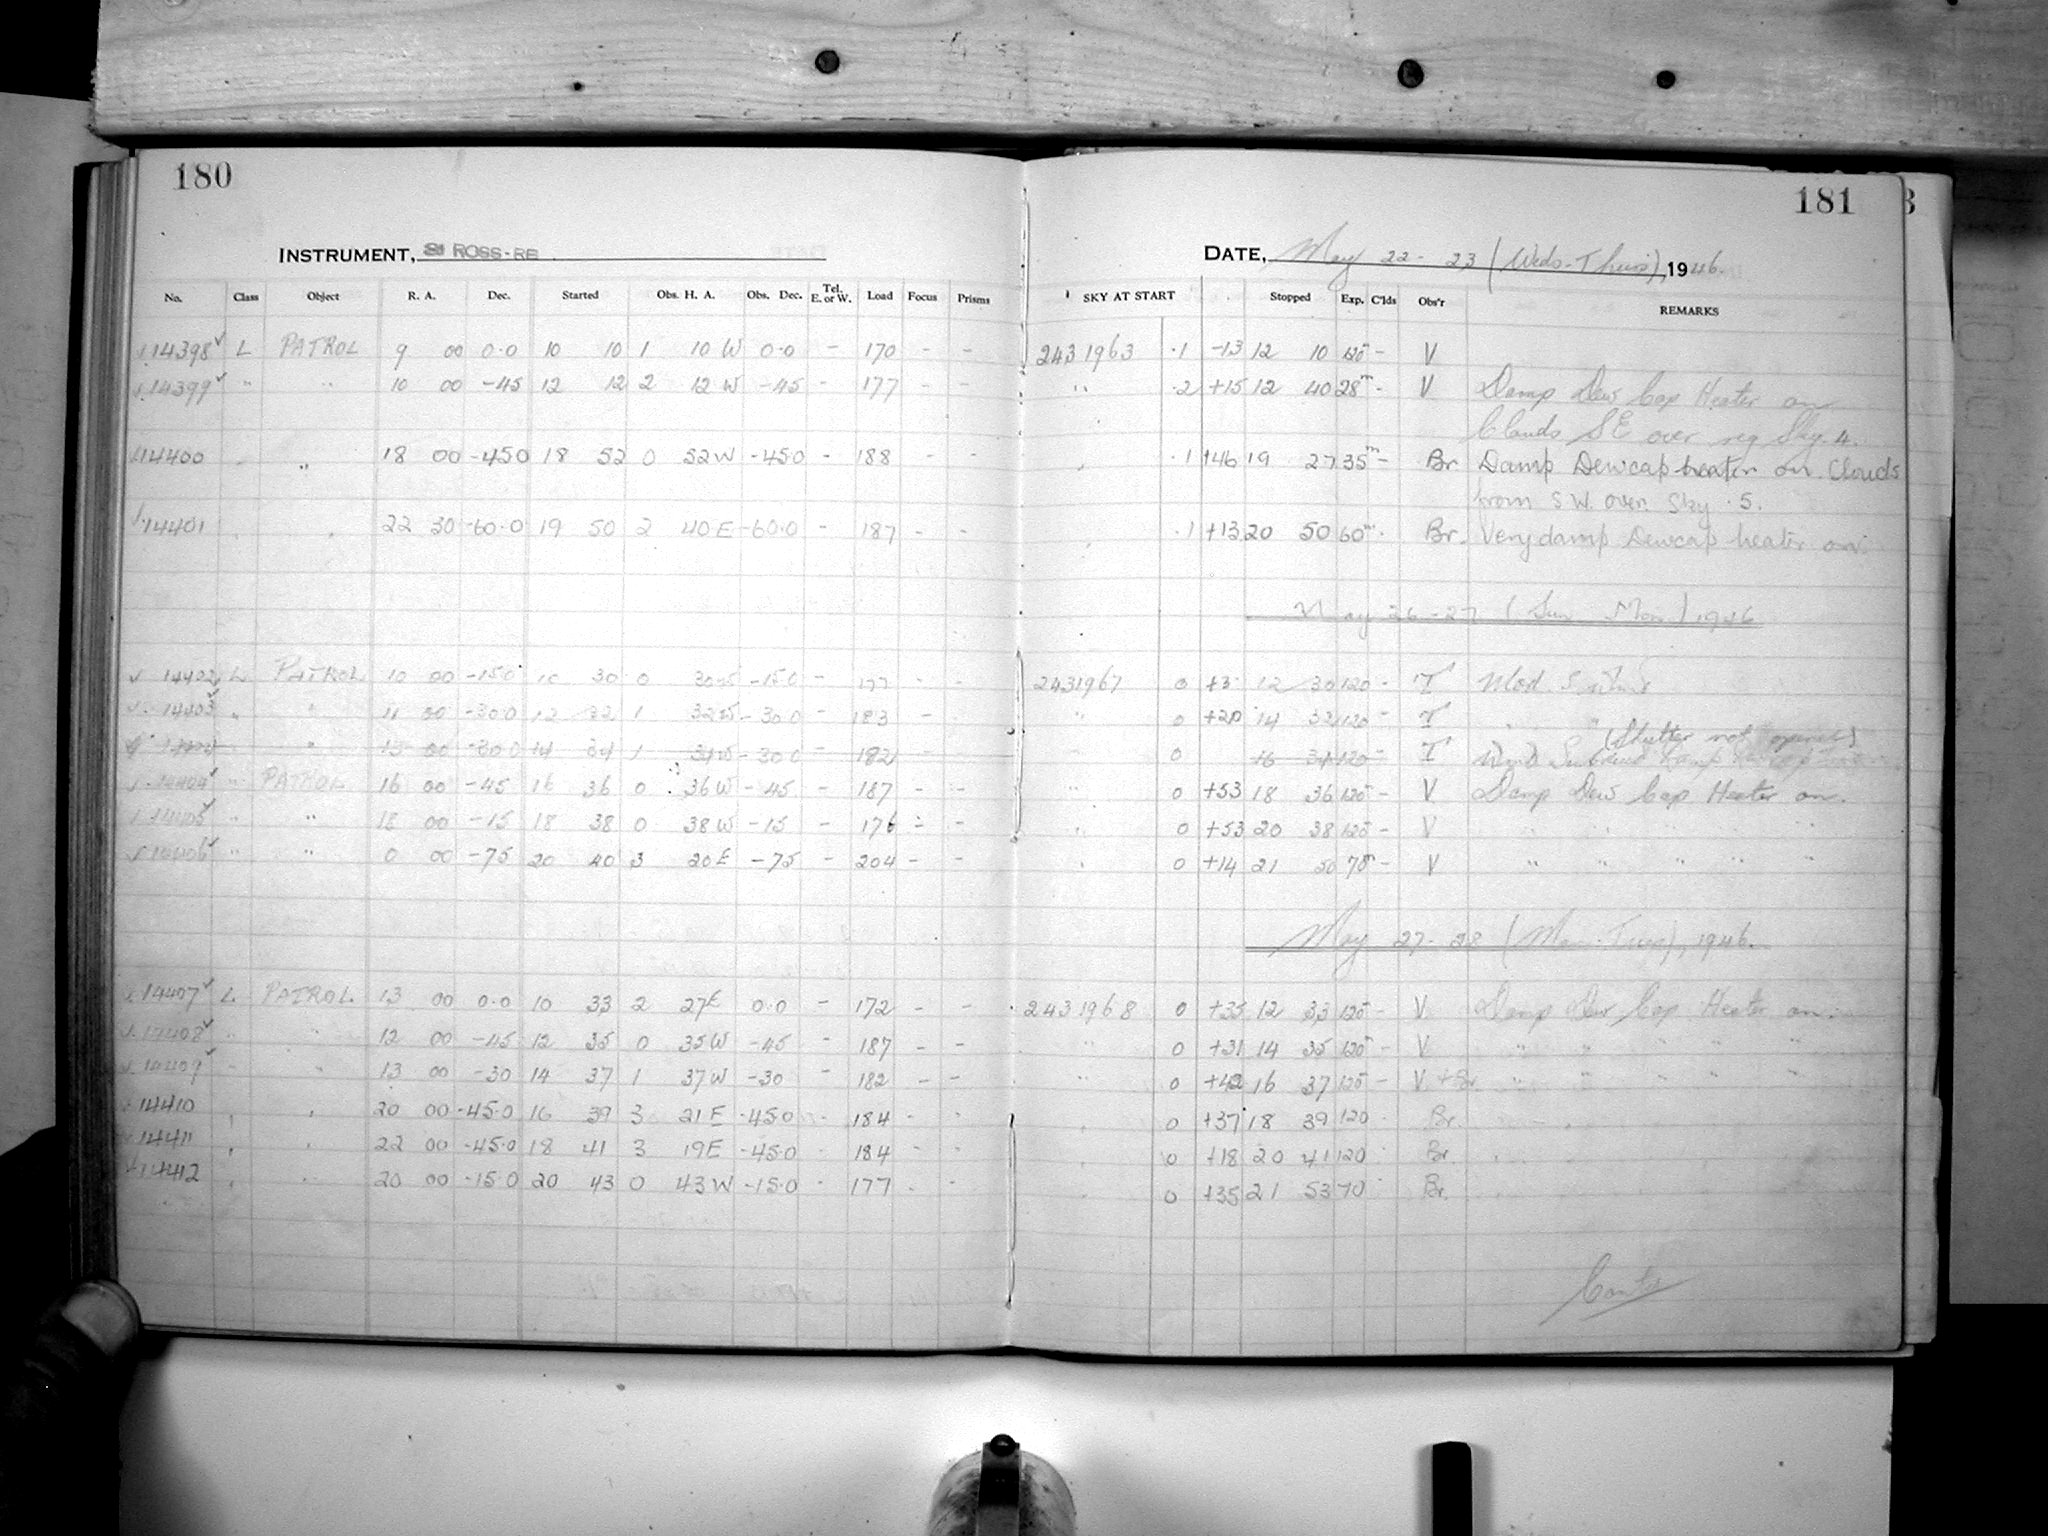 180
181
INSTRUMENT, ROSS-RB
DATE, May 22 - 23 (Weds-Thurs), 1946.
No. Class Object R. A. Dec. Started Obs. H. A. Obs. Dec. Tel. E. or W. Load Focus Prisms SKY AT START Stopped Exp. C'lds Obs'r REMARKS
14398 L PATROL 9 00 0.0 10 10 1 10 W 0.0 - 170 - - 243 1963 .1 -13 12 10 120 - V
14399 " " 10 00 -45 12 12 2 12 W -45 - 177 - - " .2 +15 12 40 28m - V Damp Dew Cap Heater on
Clouds SE over Sky .4.
14400 " 18 00 -45.0 18 52 0 52 W -45.0 - 188 - - .1 +46 19 27 35m - Br Damp Dewcap heater on. Clouds
from SW. over Sky .5.
14401 22 30 -60.0 19 50 2 40 E -60.0 - 187 - - .1 +13 20 50 60m - Br. Very damp Dewcap heater on.
May 26-27 (Sun Mon) 1946
14402 L PATROL 10 00 -15.0 10 30 0 30 W -15.0 - 177 - - 2431967 0 +3 12 30 120 - T Mod. S.
14403 " " 11 00 -30.0 12 32 1 32 W -30.0 - 183 - - " 0 +20 14 32 120 - T " "
(Shutter not opened)
" 13 00 -30.0 14 34 1 34 W -30.0 - 182 - 0 16 34 120 - T
14404 " PATROL 16 00 -45 16 36 0 36 W -45 - 187 - - " 0 +53 18 36 120 - V Damp Dew Cap Heater on.
14405 " " 18 00 -15 18 38 0 38 W -15 - 176 - - " 0 +53 20 38 120 - V " " " " "
14406 " " 0 00 -75 20 40 3 20 E -75 - 204 - - " 0 +14 21 50 70m - V " " " " "
May 27-28 (Mon-Tues), 1946.
14407 L PATROL 13 00 0.0 10 33 2 27 E 0.0 - 172 - - 243 1968 0 +35 12 33 120 - V Damp Dew Cap Heater on.
14408 " " 12 00 -45 12 35 0 35 W -45 - 187 - - " 0 +31 14 35 120 - V " " " " "
14409 " " 13 00 -30 14 37 1 37 W -30 - 182 - - " 0 +42 16 37 120 - V + Br " " " " "
14410 20 00 -45.0 16 39 3 21 E -45.0 - 184 - - 0 +37 18 39 120 Br.
14411 22 00 -45.0 18 41 3 19 E -45.0 184 - - 0 +18 20 41 120 Br.
14412 20 00 -15.0 20 43 0 43 W -15.0 - 177 - - 0 +35 21 53 70 Br.